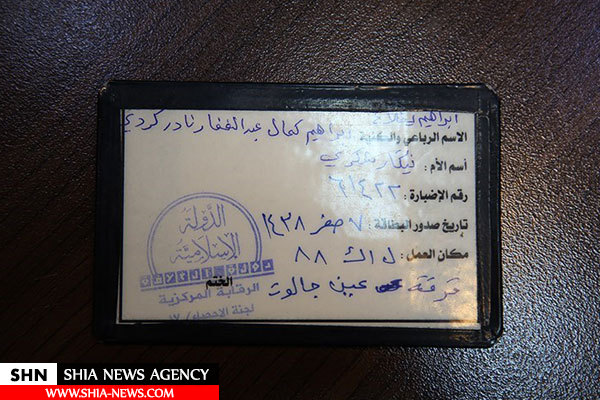 الاسم الرباعي والكنية : ابراهيم كمال عبدالغفار نادر كردي
أسم الأم :
رقم الإضبارة :
تاريخ صدور البطاقة : ٧ صفر ١٤٣٨
مكان العمل : ل اك ٨٨
فرقة عين جالوت
الدولة
الإسلامية
الختم
الرقابة المركزية
لجنة الاحصاء / ١٧
SHN SHIA NEWS AGENCY
WWW.SHIA-NEWS.COM